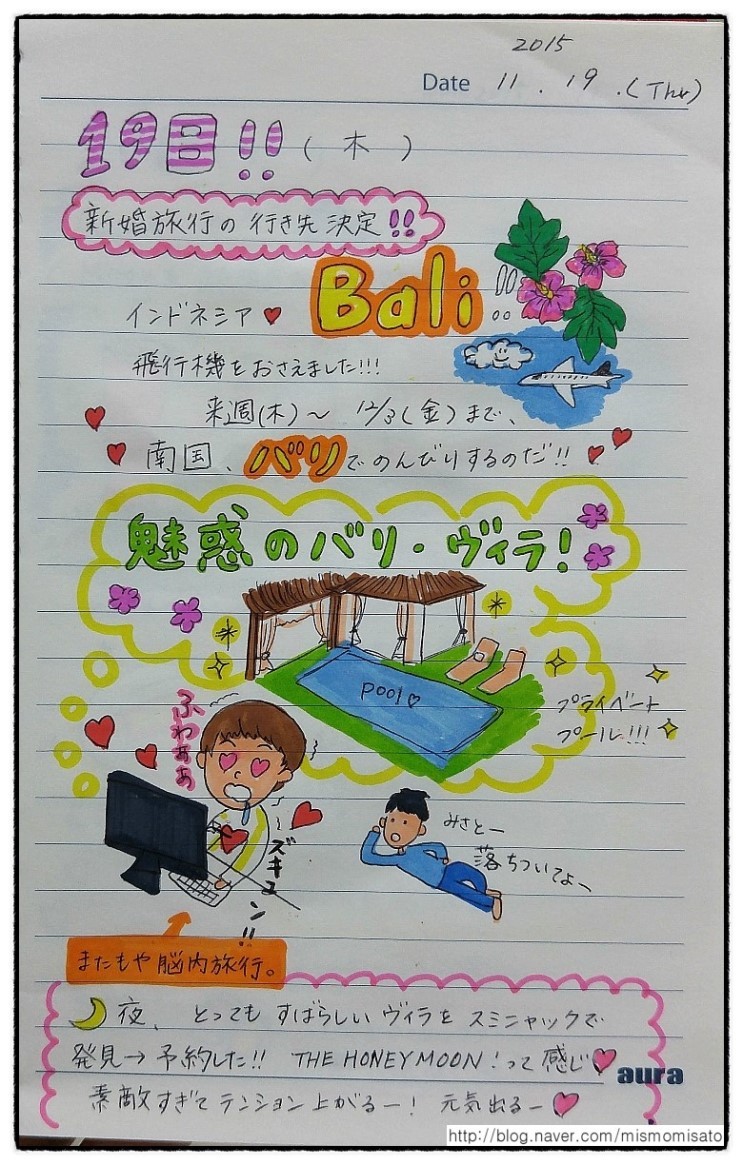 2015
Date 11.19.(Thr)
19日!!(木)
新婚旅行の行き先決定!!
Bali!!
インドネシア♥
飛行機をおさえました!!!
来週(木)〜12/3(金)まで、
南国、バリでのんびりするのだ!!
魅惑のバリ・ヴィラ!
pool♡
プライベート
プール!!!
ふわぁぁ
ズキュン!!
みさとー
落ちついてよー
またもや脳内旅行。
夜、とってもすばらしいヴィラをスミニャックで
発見→予約した!! THE HONEYMOON!って感じ♥
aura
素敵すぎてテンション上がるー! 元気出るー♥
http://blog.naver.com/mismomisato